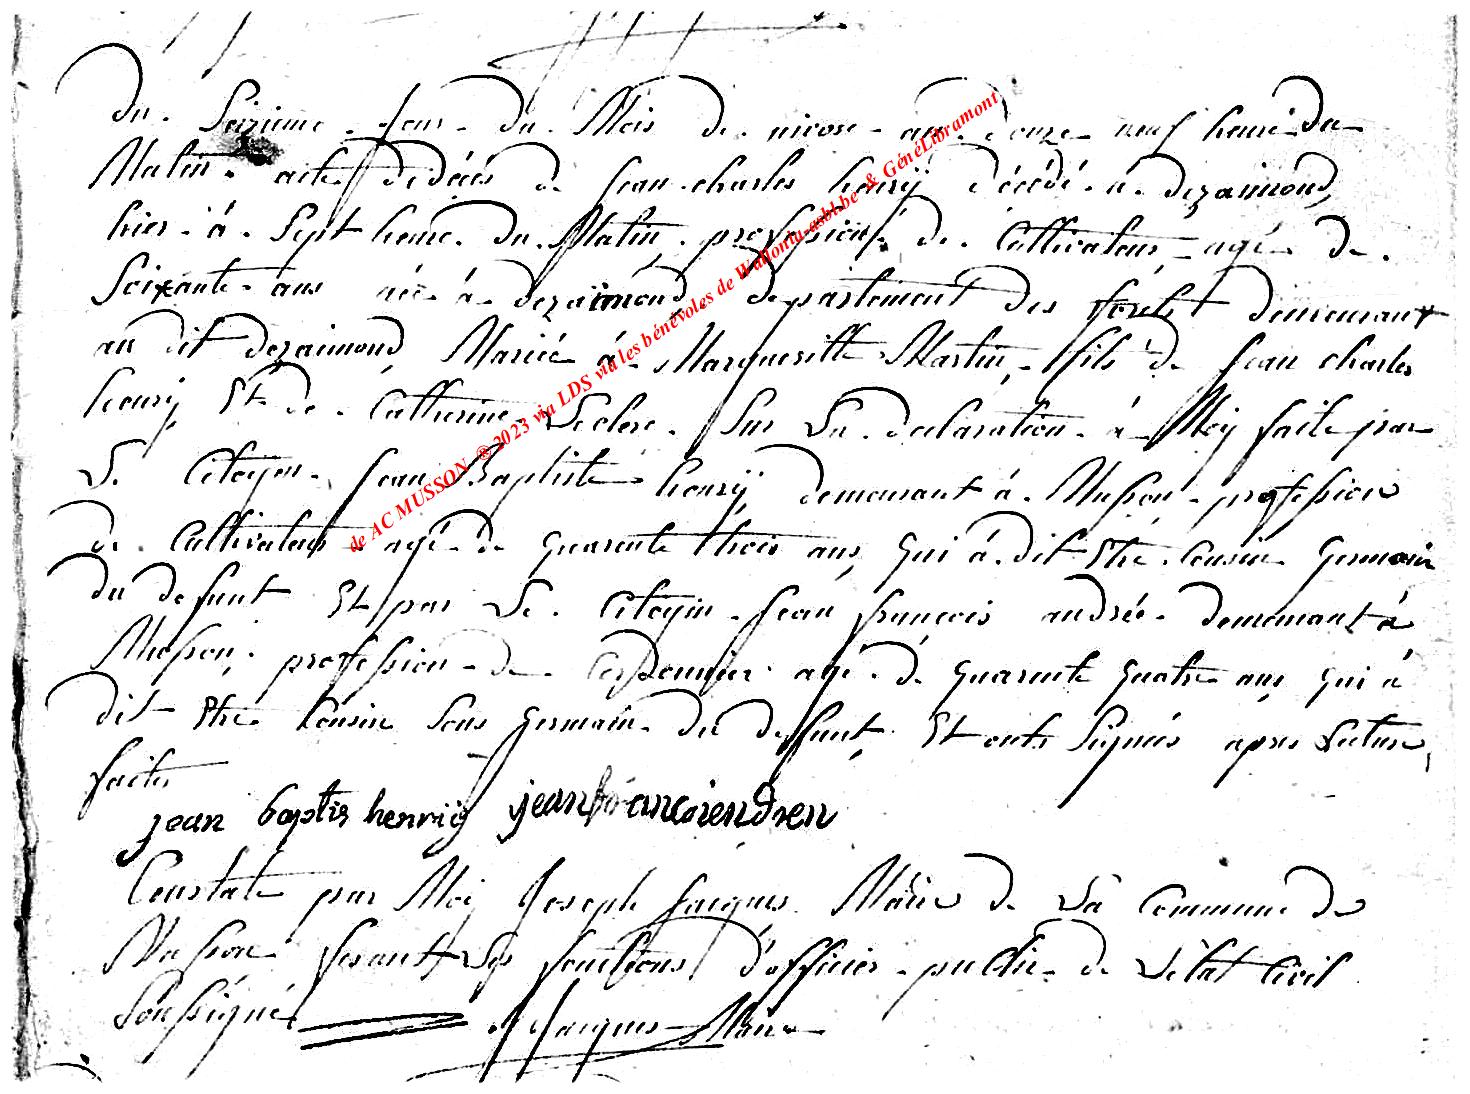 du. Seizieme jour du Mois de nivose an douze neuf heure du
Matin. acte de décés de jean charles henrÿ décédé a dezaimond,
hier à Sept heure du Matin, profession de Cultivateur agé de
Soixante ans née à dezaimond departement des forêts demeurant
au dit dezaimond, Mariée à Margueritte Martin, fils de jean charles
henrij Et de Catherine Leclere. Sur La declaration à Moy faite par
Le Citoyen jean Baptiste henrÿ demeurant à Musson profession
de Cultivateur agé de quarente trois ans, qui à dit Etre Cousin germain
du defunt Et par Le Citoyin jean françois andrée demeurant à
Musson, profession de Cordonnier agé de quarente quatre ans qui à
dit Etre Cousin Sous germain du defunt, Et onts Signés apres Lecture,
faites
jean baptis henrij jeanfrancoiendren
Constate par Moy Joseph jacques Maire de La Commune de
Musson fesant Les fonctions d'officier public de L'état Civil
Soussigné J Jacques Maire
de AC MUSSON ®2023 via LDS via les bénévoles de Wallonia-asbl.be & GénéLibramont